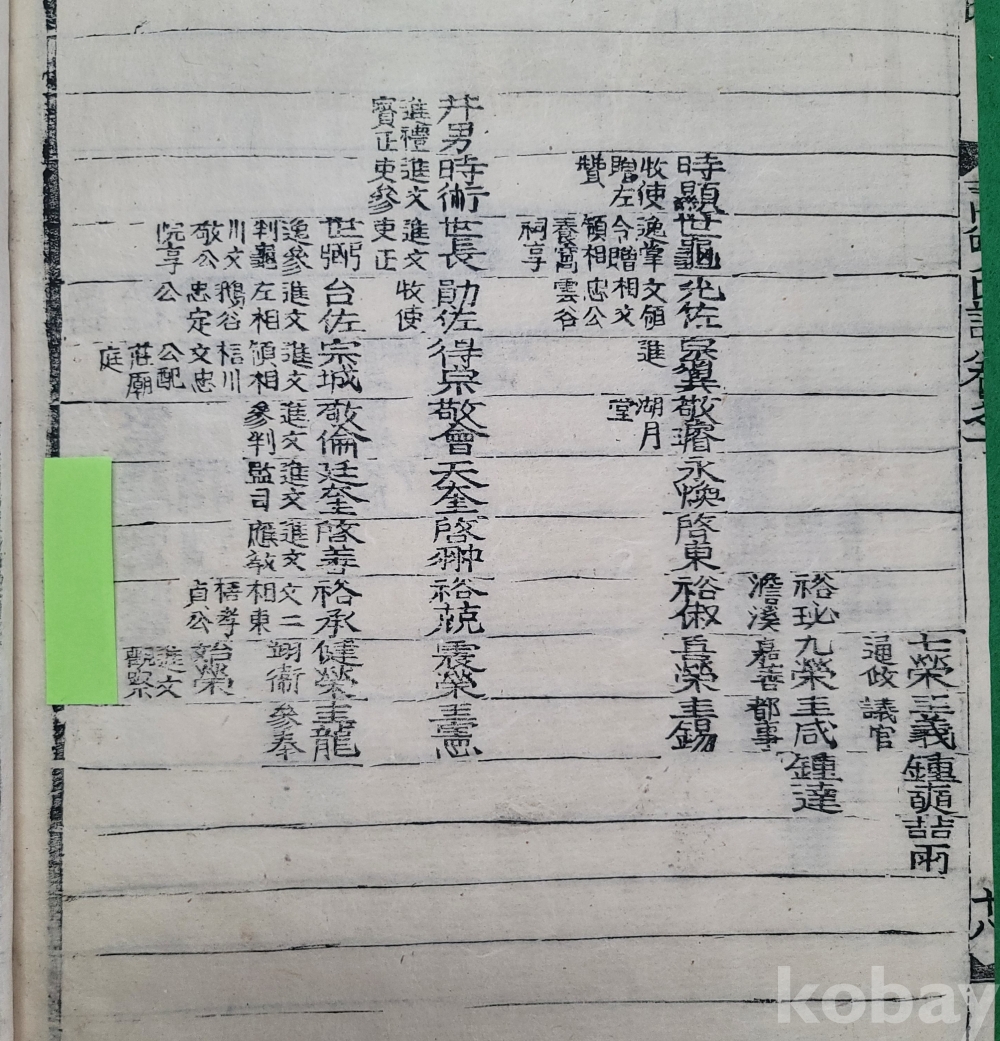 七榮圭義鍾
喆雨
通政議官
裕玜九榮圭咸鍾達
澹溪嘉善都事
時顯世龜光佐宗翼敬睿永煥啓東裕俶兵榮圭錫
牧使逸掌文領進湖月
贈左令贈相文堂
贊領相忠公
養窩雲谷
祠享
弁男時術世長勛佐得宗敬會天奎啓翀裕兢震榮圭憲
進禮進文進文牧使
賓正吏參吏正
世弼台佐宗城敬倫廷奎啓善裕承健榮圭龍
逸參進文進文進文進文進文文二翊衛參奉
判龜左相領相參判監司應敎相東始榮
川文鵝谷梧川梧孝進文
敬公忠定文忠貞公觀察
院享公公配
莊廟
庭
十八
kobay